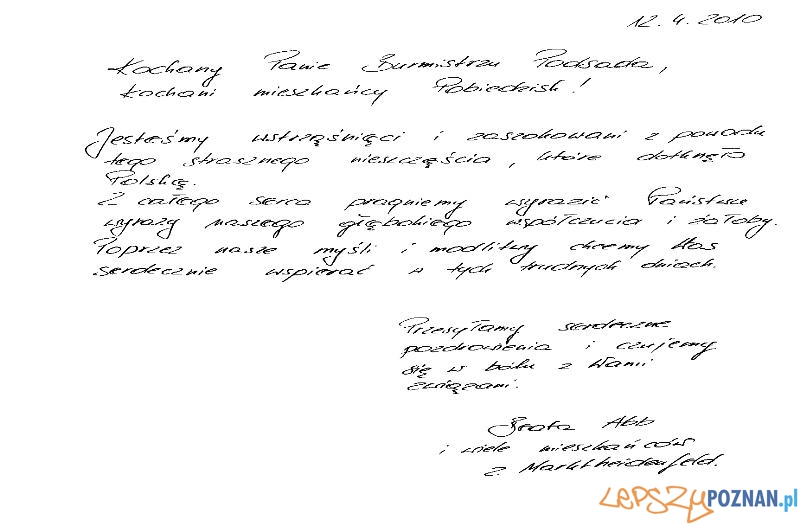 12.4.2010
Kochany Panie Burmistrzu Podsada,
kochani mieszkańcy Pobiedzisk!
Jesteśmy wstrząśnięci i zaszokowani z powodu
tego strasznego nieszczęścia, które dotknęło
Polskę.
Z całego serca pragniemy wyrazić Państwu
wyrazy naszego głębokiego współczucia i żałoby.
Poprzez nasze myśli i modlitwy chcemy Was
serdecznie wspierać w tych trudnych dniach.
Przesyłamy serdeczne
pozdrowienia i czujemy
się w bólu z Wami
związani.
Beata Abb
i wiele mieszkańców
z Marktheidenfeld.
LEPSZYPOZNAN.pl